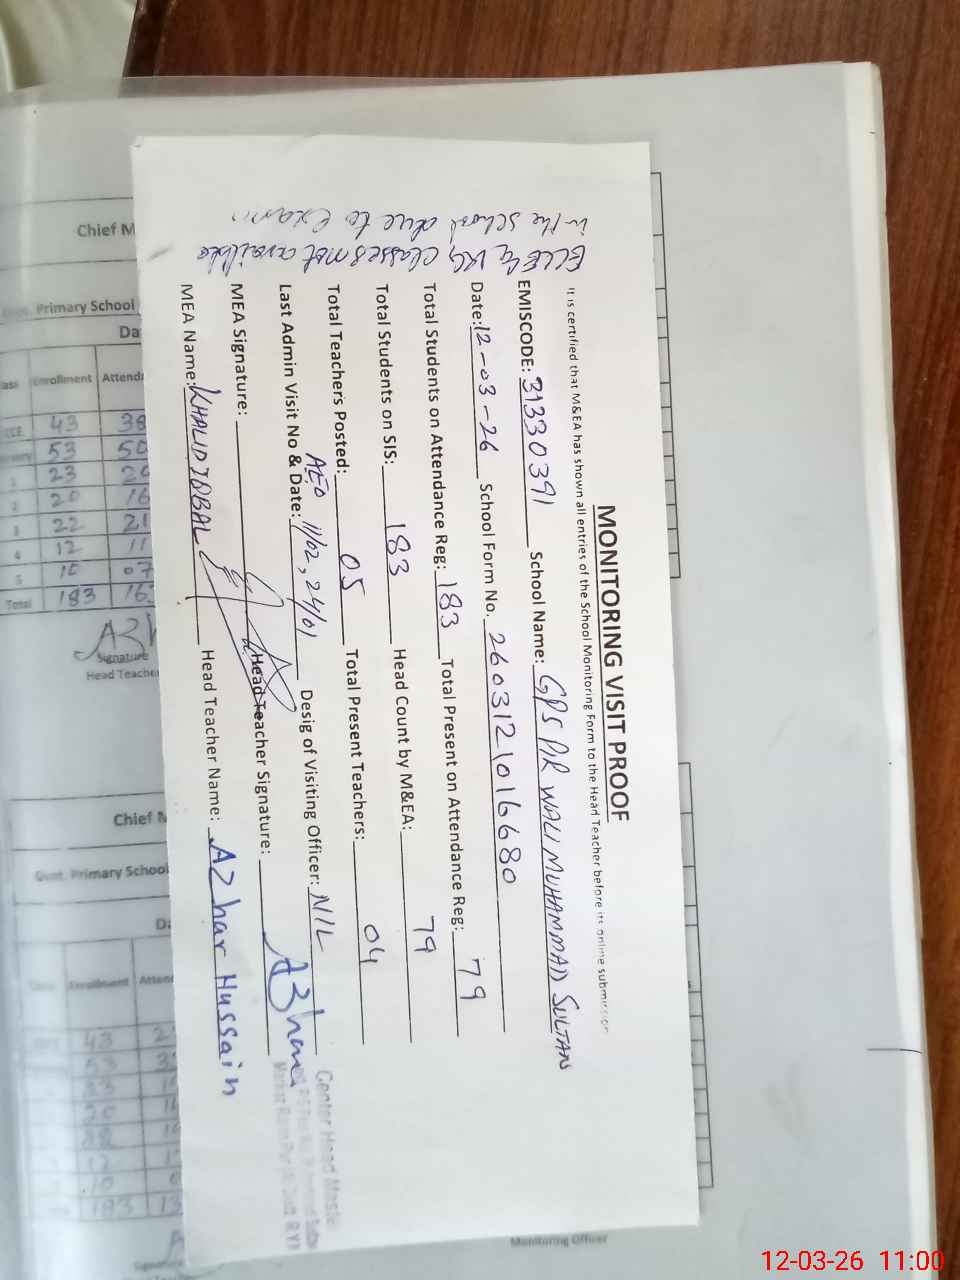 MONITORING VISIT PROOF
It is certified that M&EA has shown all entries of the School Monitoring Form to the Head Teacher before its online submission
EMISCODE: 31330391 School Name: GPS PIR WALI MUHAMMAD SULTAN
Date: 12-03-26 School Form No. 2603121016680
Total Students on Attendance Reg: 183 Total Present on Attendance Reg: 79
Total Students on SIS: 183 Head Count by M&EA: 79
Total Teachers Posted: 05 Total Present Teachers: 04
Last Admin Visit No & Date: AEO 11/02, 24/01 Desig of Visiting Officer: NIL
MEA Signature: Head Teacher Signature: Azhar
MEA Name: KHALID IQBAL Head Teacher Name: Azhar Hussain
Center Head
ECCE & KG classes not available
in the school due to Exam
Chief M
Primary School
Da
Enrollment Attend
43 38
53 50
1 23
2 20 16
3 22 21
4 12 11
5 10 07
Total 183 163
Signature
Head Teacher
Chief M
Govt. Primary School
Da
Enrollment Atten
43
20
12
10
183 13
Signature
Monitoring Officer
12-03-26 11:00